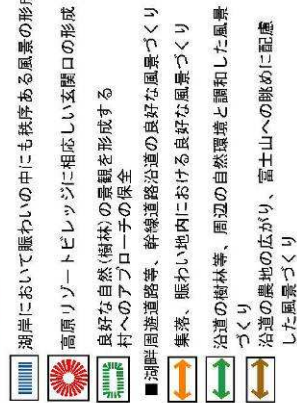 湖岸において賑わいの中にも秩序ある風景の形成
高原リゾートビレッジに相応しい玄関口の形成
良好な自然(樹林)の景観を形成する
村へのアプローチの保全
■湖畔周遊道路等、幹線道路沿道の良好な風景づくり
集落、賑わい地内における良好な風景づくり
沿道の樹林等、周辺の自然環境と調和した風景
づくり
沿道の農地の広がり、富士山への眺めに配慮
した風景づくり